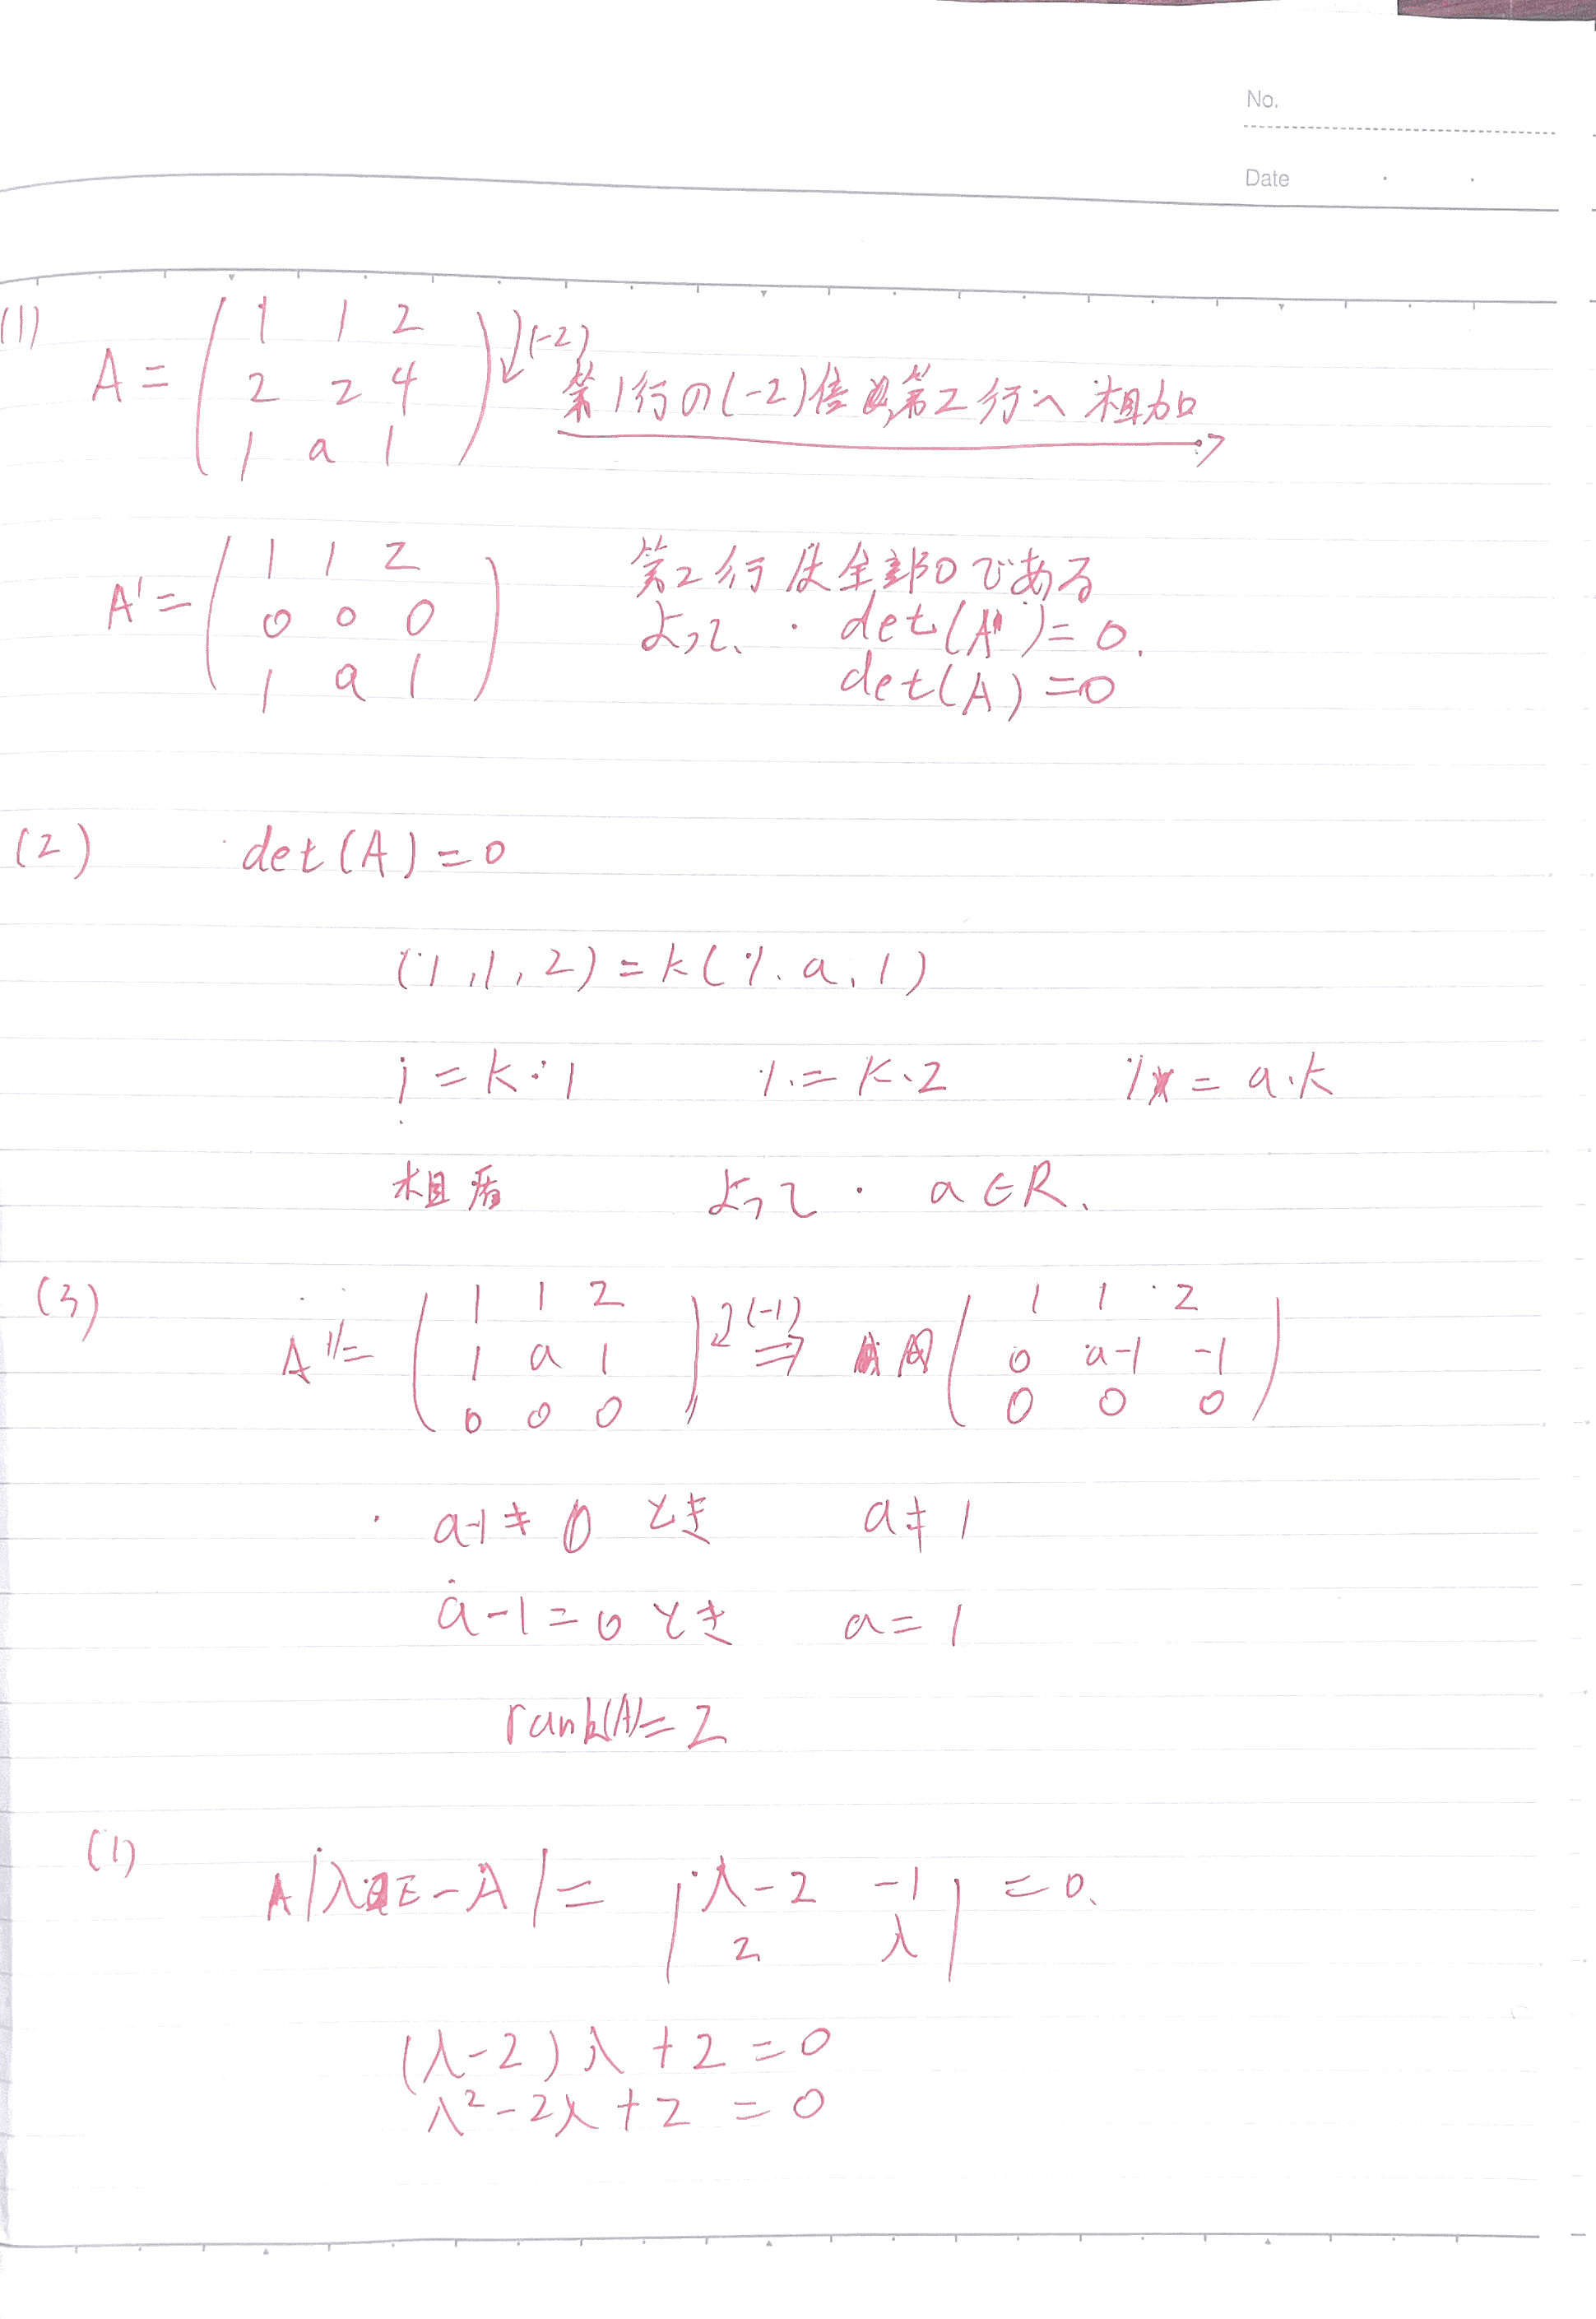 No.
Date
(1)
A = ( 1 1 2
2 2 4
1 a 1 ) (-2) 第1行の(-2)倍 第2行へ 相加
A' = ( 1 1 2
0 0 0
1 a 1 )
第2行は全部0である
よって、 det(A')=0.
det(A)=0
(2) det(A)=0
(1,1,2)=k(1.a,1)
1=k·1 1=k·2 1=a·k
相盾 よって a∈R、
(3)
A''= ( 1 1 2
1 a 1
0 0 0 ) (-1) ⇒ ( 1 1 2
0 a-1 -1
0 0 0 )
a-1≠0 とき a≠1
a-1=0 とき a=1
rank(A)=2
(1)
A|λE-A|= | λ-2 -1
2 λ | =0.
(λ-2)λ+2=0
λ²-2λ+2=0